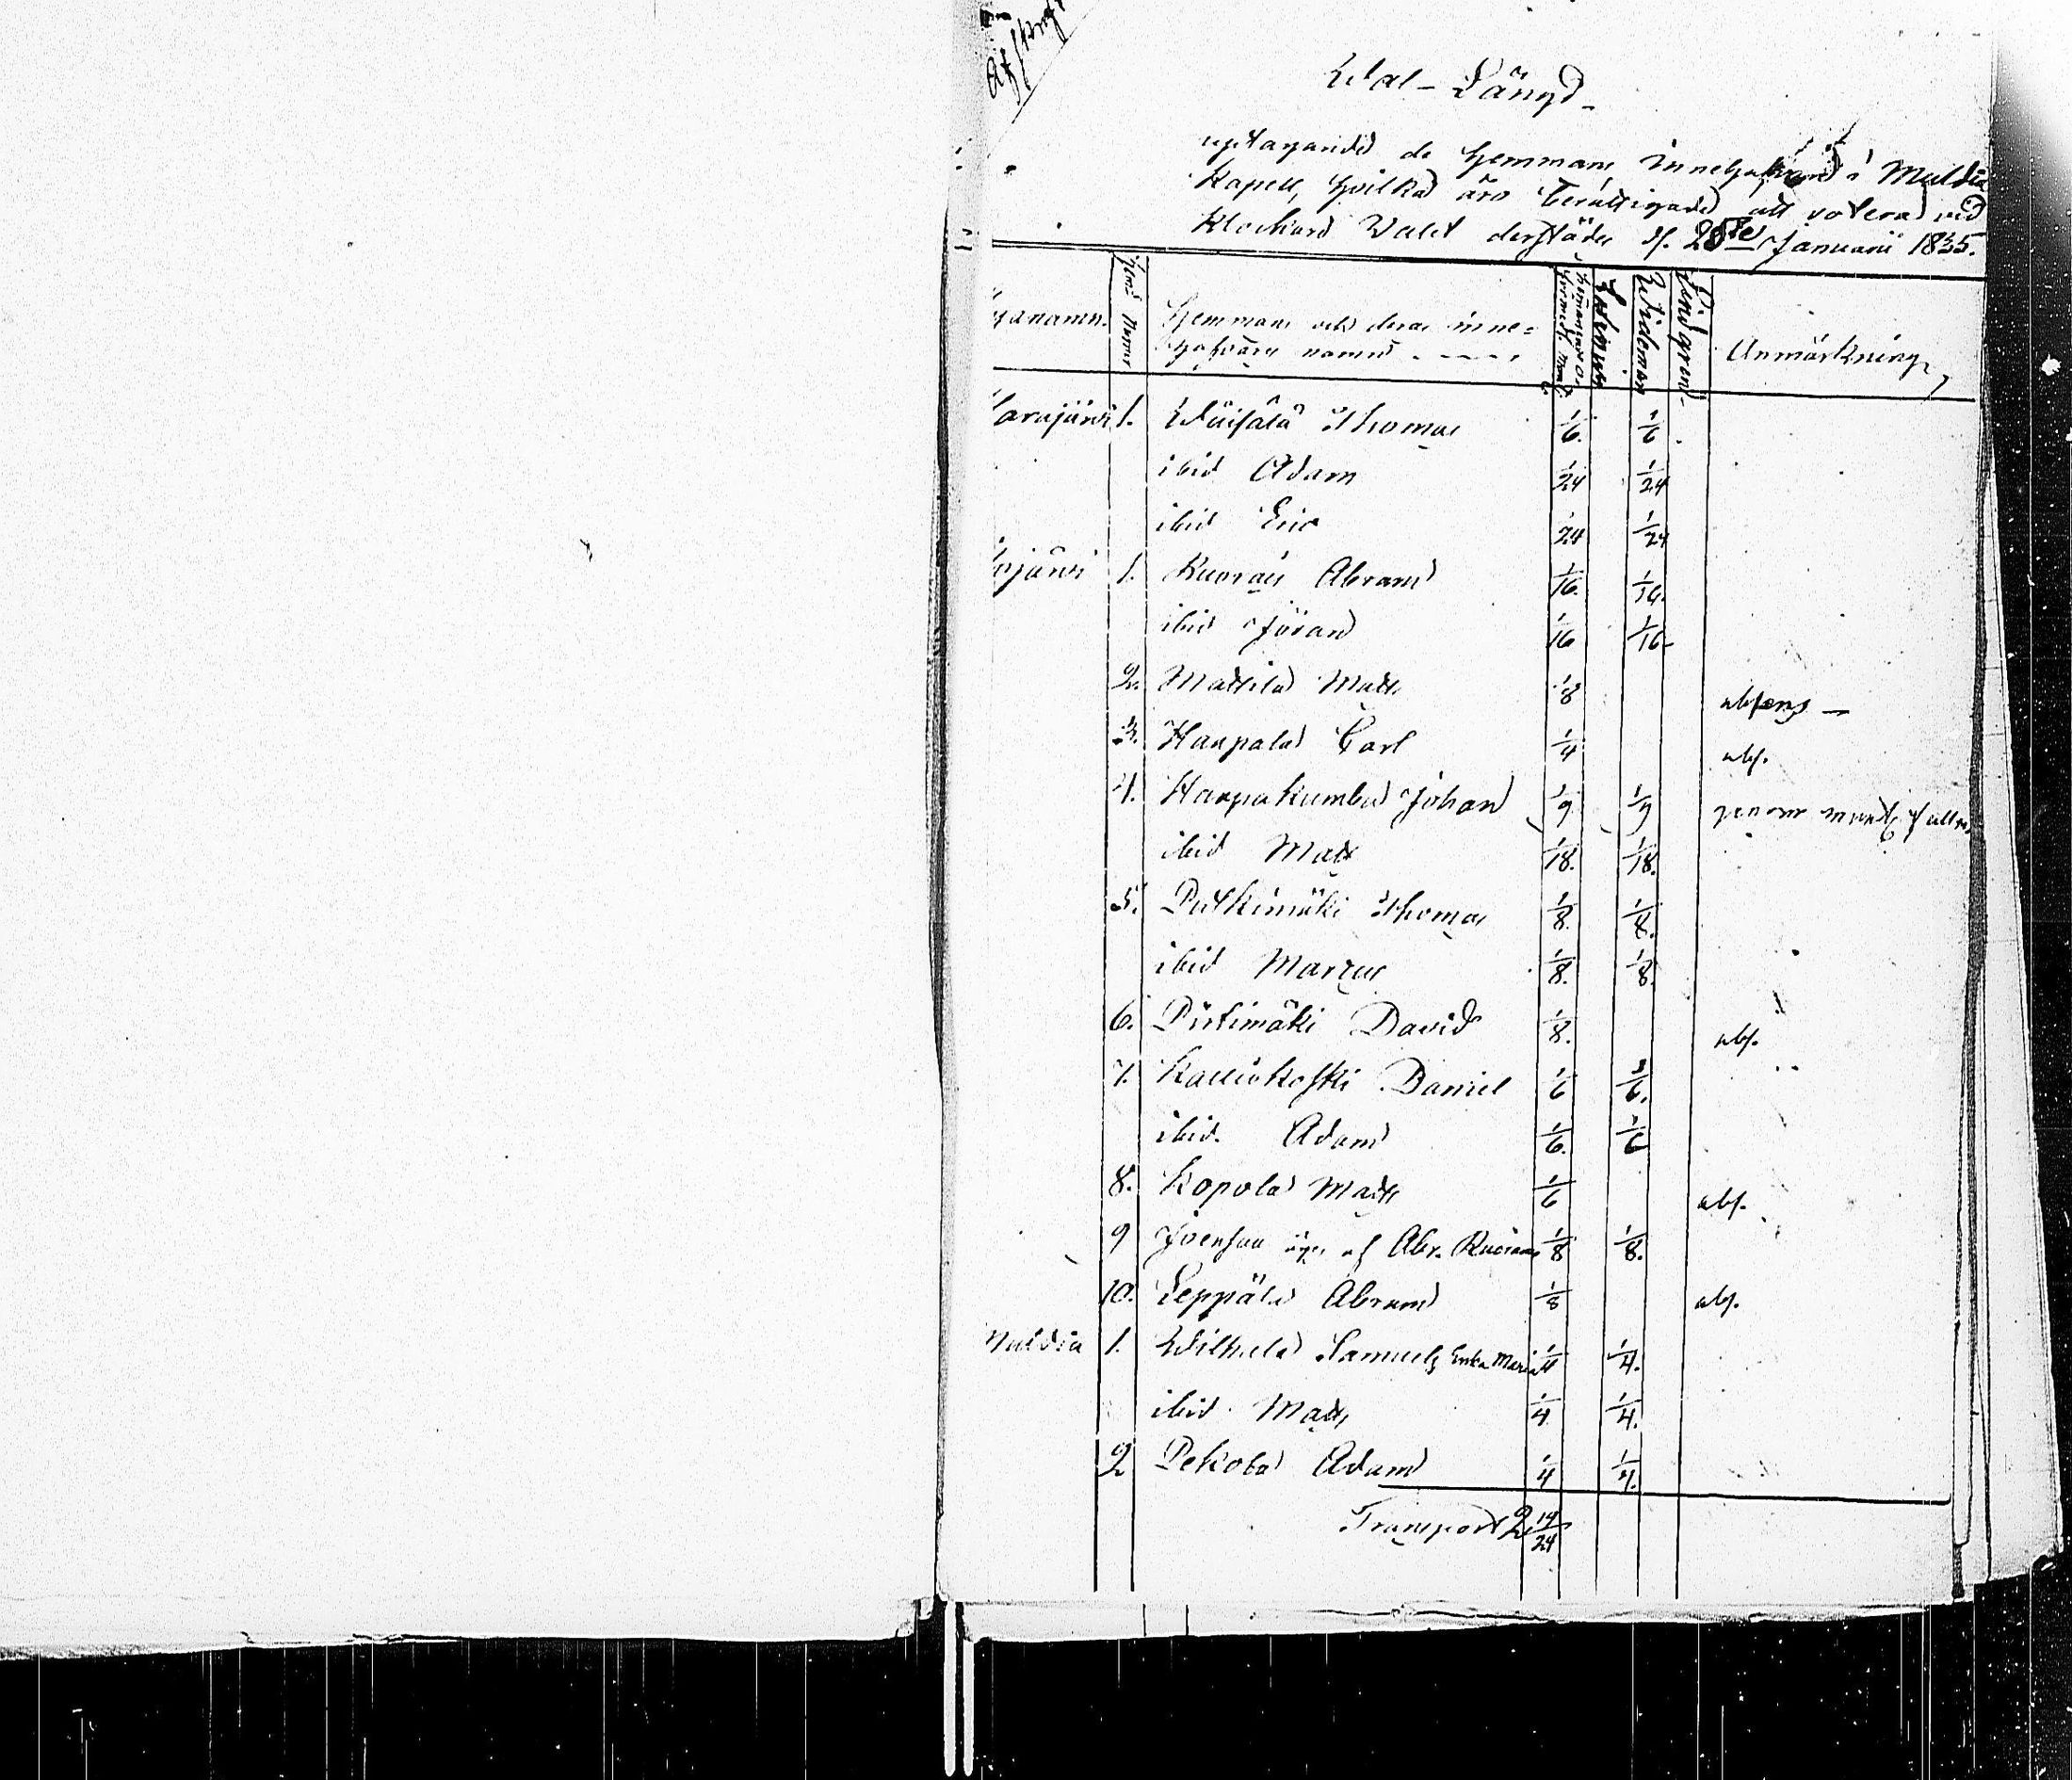 Afskrift
Wal-Längd
upptagande de Hemmans Innehafvare i Muldia
Kapell, hvilka äro berättigade att votera vid
Klockare Valet derstädes d. 28de Januarii 1835.
Hemmans och deras inne=
hafvares namn
Wideman
Lindgren
Anmärkning
arajärvi 1. Wäisälä Thomas 1/6. 1/6
ibid Adam 1/24 1/24
ibid Eric 1/24 1/24
ojärvi 1. Kuoras Abram 1/16. 1/16.
ibid Jöran 1/16 1/16
2. Mattila Matts 1/8 absens
3. Haapala Carl 1/4 abs.
4. Haapakumbu Johan 1/9 1/9 genom
ibid Matts 1/18. 1/18.
5. Putkimäki Thomas 1/8. 1/8.
ibid Marcus 1/8. 1/8.
6. Pirtimäki David 1/8. abs.
7. Kalliokoski Daniel 1/6 1/6.
ibid. Adam 1/6. 1/6
8. Kopola Matts 1/6 abs.
9 Joensuu äges af Abr. Kuoras 1/8 1/8.
10. Leppälä Abram 1/8 abs.
Muldia 1. Wilkula Samuels Enka Maria 1/4 1/4.
ibid Matts 1/4 1/4.
2 Pekola Adam 1/4 1/4.
Transport 2 14/24